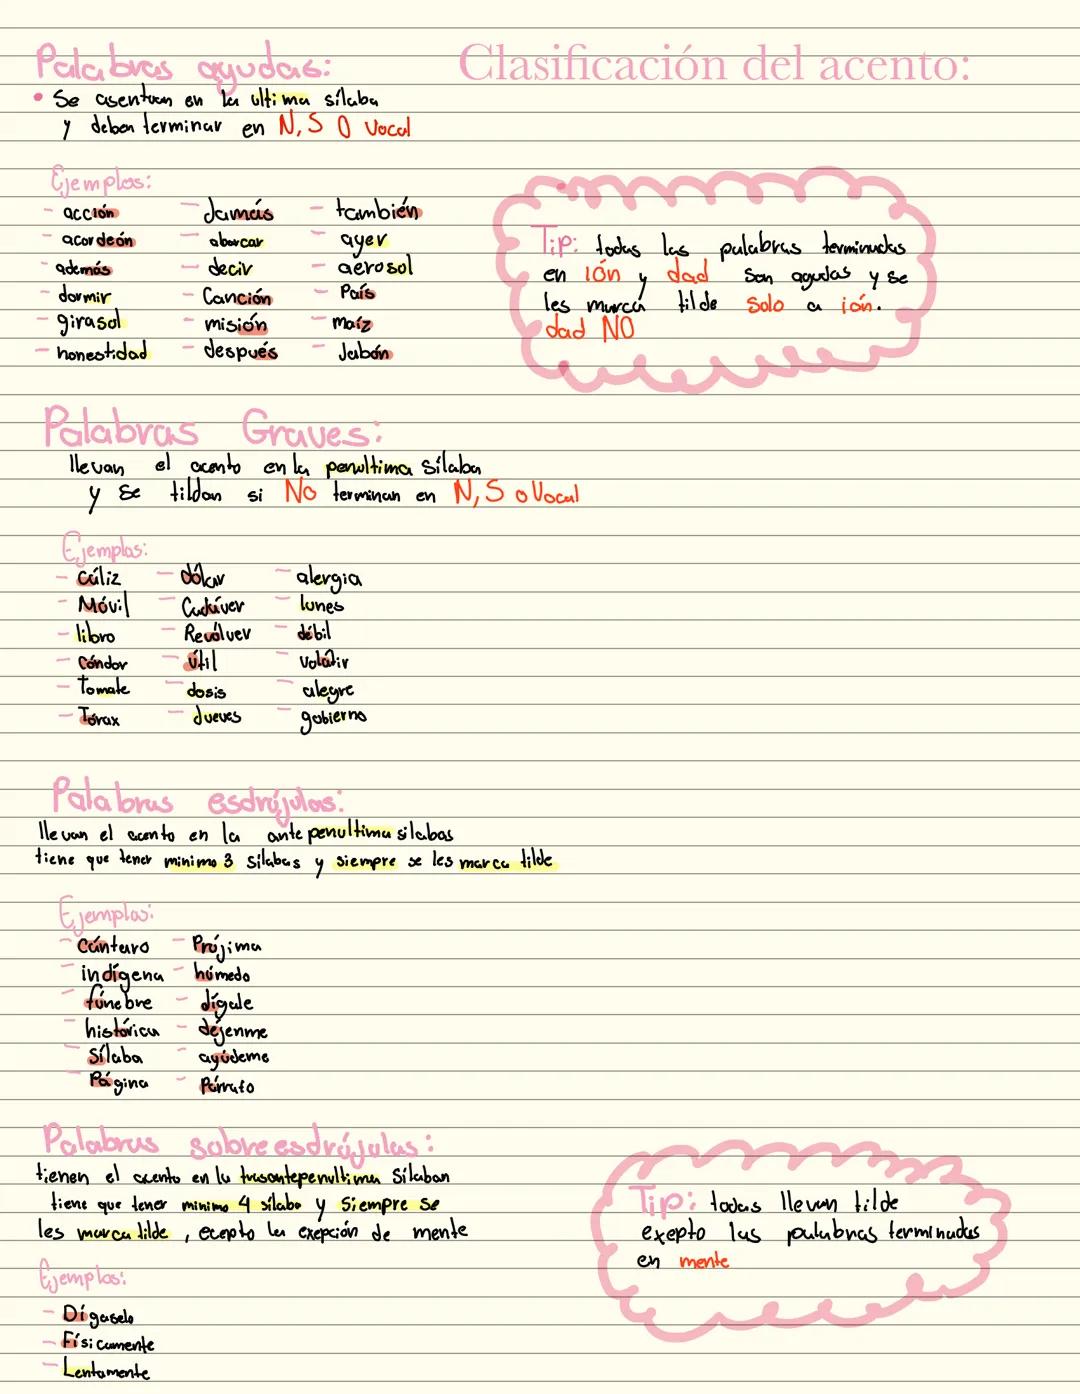 Clasificación del acento:
Palabras agudas:
• Se asentuan en la ultima sílaba
y deben terminar en N, S O Vocal
Ejemplos:
- acción - Jamás - también
- acordeón - abarcar - ayer
- además - decir - aerosol
- dormir - Canción - País
- girasol - misión - maíz
- honestidad - después - Jabón
Tip: todas las palabras terminadas
en ión y dad Son agudas y se
les marca tilde Solo a ión.
dad NO
Palabras Graves:
llevan el acento en la penultima Sílaba
y se tildan si No terminan en N, S o Vocal
Ejemplos:
- Cáliz - dólar - alergia
- Móvil - Cadáver - lunes
- libro - Revólver - débil
- Cóndor - útil - Volátir
- Tomate - dosis - alegre
- Tórax - Jueves - gobierno
Palabras esdrújulas:
llevan el acento en la antepenultima silabas
tiene que tener minimo 3 Silabas y siempre se les marca tilde
Ejemplos:
- Cántaro - Prójima
- indígena - húmedo
- fúnebre - dígale
- histórica - déjenme
- Sílaba - ayúdeme
- Página - Párrafo
Palabras sobreesdrújulas:
tienen el acento en la trasantepenultima Sílaban
tiene que tener minimo 4 sílaba y Siempre se
les marca tilde, ecepto la exepción de mente
Ejemplos:
- Dígaselo
- Físicamente
- Lentamente
Tip: todas llevan tilde
exepto las palabras terminadas
en mente